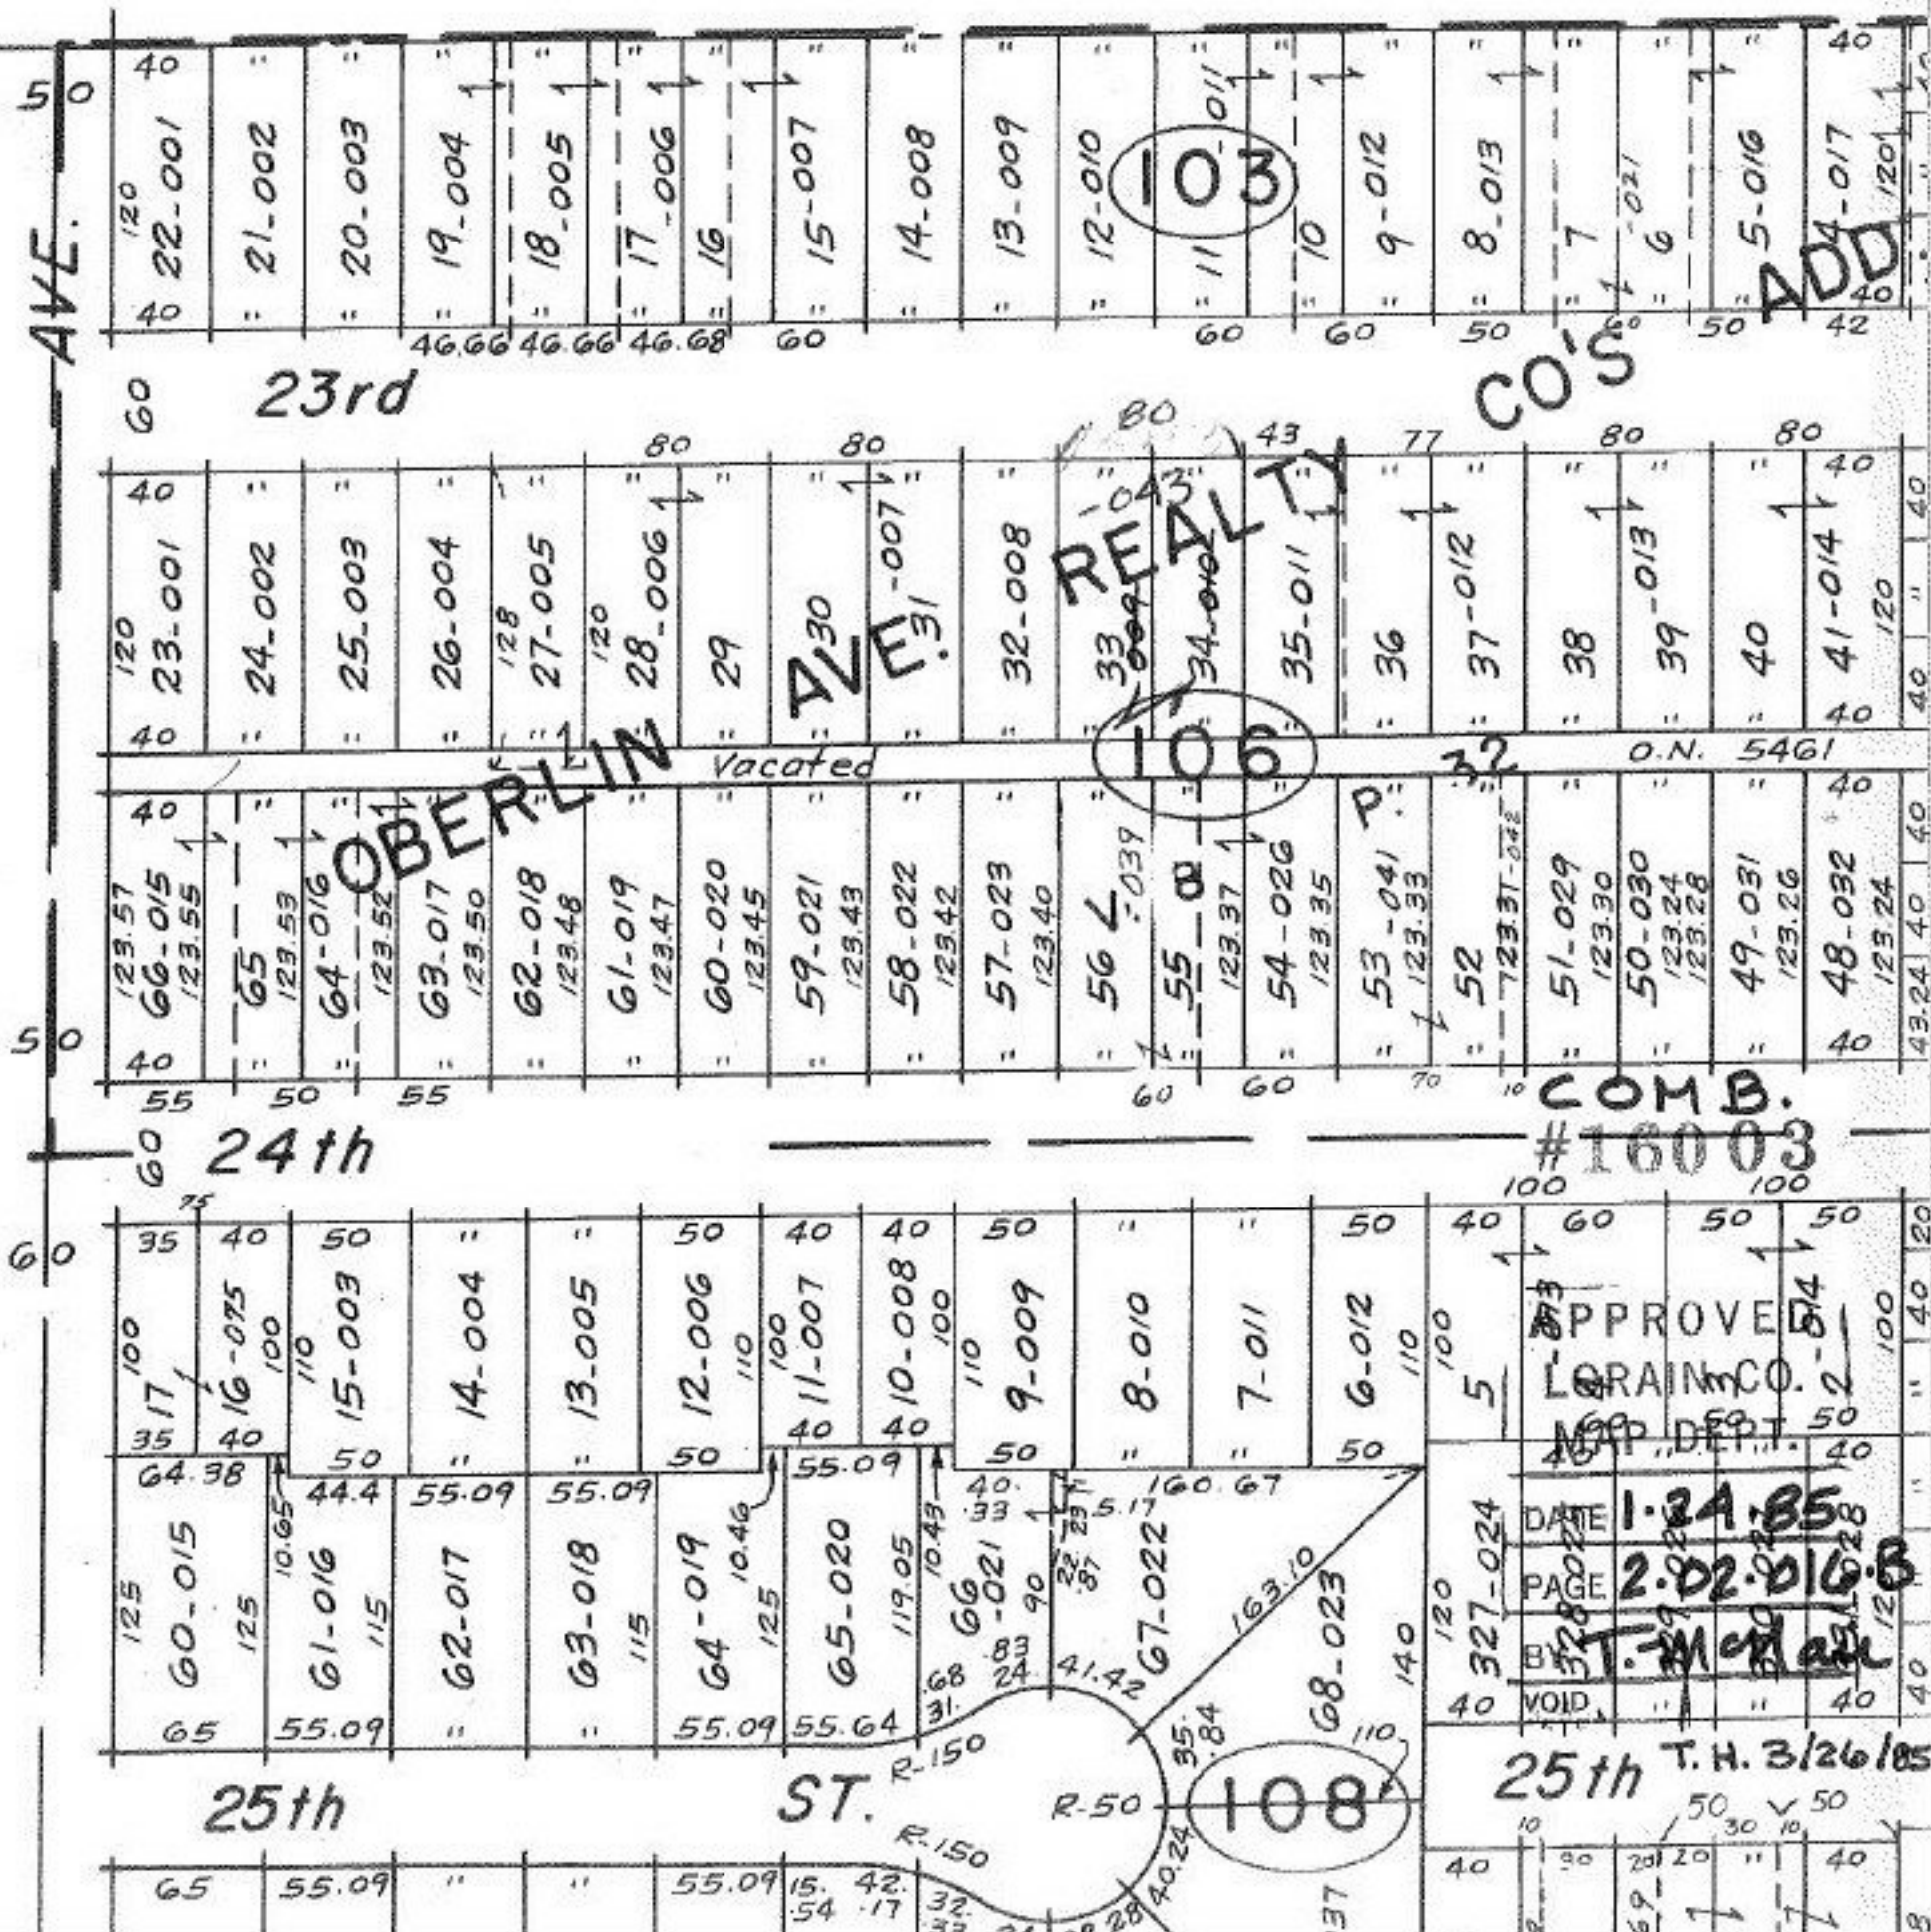 40 " " " " " " " " " " " " " " " " " 40
50
AVE.
120 22-001 21-002 20-003 19-004 18-005 17-006 16 15-007 14-008 13-009 12-010 11 -011 10 9-012 8-013 7 6 -021 5-016 4-017 120
103
40 " " " " " " " " " " " " " " " " " 40
46.66 46.66 46.68 60 60 60 50 60 50 42
60 23rd
OBERLIN AVE. REALTY CO'S ADD.
80 80 80 43 77 80 80
40 " " " " " " " " " " " " " " " " " 40
120 23-001 24-002 25-003 26-004 128 27-005 120 28-006 29 30 31-007 32-008 33 009 34-010 -043 35-011 36 37-012 38 39-013 40 41-014 120
40 " " " " " " " " " " " " " " " " " 40
Vacated 106 32 O.N. 5461
40 " " " " " " " " " " " P. " " " " " 40
123.57 66-015 123.55 65 123.53 64-016 123.52 63-017 123.50 62-018 123.48 61-019 123.47 60-020 123.45 59-021 123.43 58-022 123.42 57-023 123.40 56 L -039 55 8 123.37 54-026 123.35 53-041 123.33 52 123.31-042 51-029 123.30 50-030 123.24 123.28 49-031 123.26 48-032 123.24 43.24
50
40 " " " " " " " " " " " " " " " " " 40
55 50 55 60 60 70 10
COMB.
60 24th
#16003
75 100 100
60
35 40 50 " " 50 40 40 50 " " 50 40 60 50 50 20
100 17 16-075 100 110 15-003 14-004 13-005 12-006 110 100 11-007 10-008 100 110 9-009 8-010 7-011 6-012 110 100 5 2-014 100
35 40 50 " " 50 40 40 50 " " 50 60 50 50
APPROVED
LORAIN CO.
MAP DEPT.
DATE 1.24.85
PAGE 2.02.016.B
BY
VOID
64.38 44.4 55.09 55.09 55.09 40.33 5.17 160.67 40
125 60-015 125 10.65 61-016 115 62-017 63-018 115 64-019 10.46 125 65-020 119.05 10.43 66-021 90 22.23 .87 67-022 163.10 68-023 140 120 327-024
.83 24. .68 31. 41.42 35.84 110
65 55.09 " " 55.09 55.64 40 " " 40
R-150
25th ST. R-50 108 25th T.H. 3/26/85
R-150 40.24
50 50
10 30 10
65 55.09 " " 55.09 15.54 42.17 32. 28 37 40 20 20 " 40